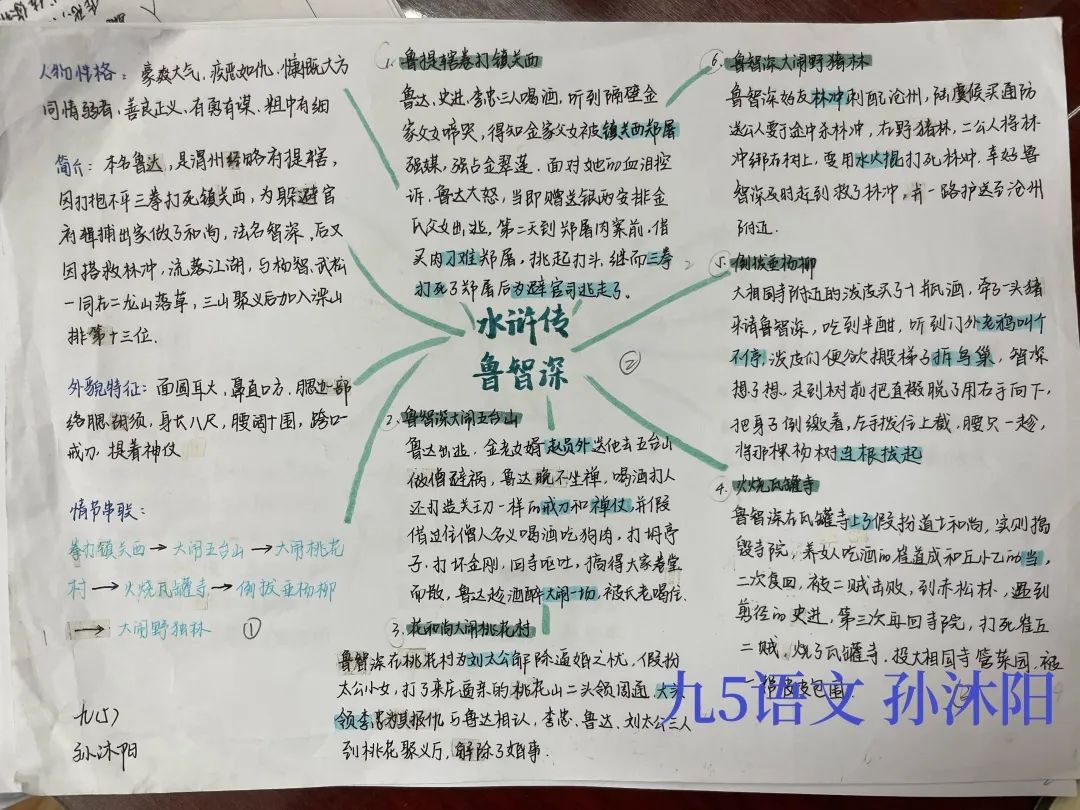 人物性格：豪爽大气，疾恶如仇，慷慨大方
同情弱者，善良正义，有勇有谋，粗中有细
简介：本名鲁达，是渭州经略府提辖，
因打抱不平三拳打死镇关西，为躲避官
府缉捕出家做了和尚，法名智深，后又
因搭救林冲，流落江湖，与杨智、武松
一同在二龙山落草，三山聚义后加入梁山
排第十三位.
外貌特征：面圆耳大，鼻直口方，腮边一部
络腮胡须，身长八尺，腰阔十围，跨口
戒刀，提着神仗
情节串联：
拳打镇关西→大闹五台山→大闹桃花
村→火烧瓦罐寺→倒拔垂杨柳
→大闹野猪林 ①
九（5）
孙沐阳
水浒传
鲁智深
②
1. 鲁提辖拳打镇关西
鲁达，史进，李忠三人喝酒，听到隔壁金
家父女啼哭，得知金家父女被镇关西郑屠
强媒，强占金翠莲．面对她的血泪控
诉．鲁达大怒，当即赠送银两安排金
氏父女出逃，第二天到郑屠肉案前，借
买肉刁难郑屠，挑起打头，继而三拳
打死了郑屠后为避官司逃走了。
2. 鲁智深大闹五台山
鲁达出逃．金老女婿赵员外送他去五台山
做僧避祸，鲁达晚不坐禅，喝酒打人
还打造关王刀一样的戒刀和禅仗，并假
借过往僧人名义喝酒吃狗肉，打坍亭
子．打坏金刚，回寺呕吐，搞得大家卷堂
而散，鲁达趁酒醉大闹一场，被长老喝住.
3. 花和尚大闹桃花村
鲁智深在桃花村为刘太公解除逼婚之忧，假扮
太公小女，打了来庄逼亲的桃花山二头领周通，大头
领李忠为其报仇与鲁达相认，李忠、鲁达、刘太公三人
到桃花聚义厅，解除了婚事.
4. 火烧瓦罐寺
鲁智深在瓦罐寺上了假扮道士和尚，实则捣
毁寺院，养女人吃酒的崔道成和丘小乙的当，
二次复回，被二贼击败，到赤松林，遇到
剪径的史进，第三次再回寺院，打死崔丘
二贼，烧了瓦罐寺．投大相国寺管菜园，被
5. 倒拔垂杨柳
大相国寺附近的泼皮买了十瓶酒，牵了一头猪
来请鲁智深，吃到半酣，听到门外老鸦叫个
不停，泼皮们便欲搬梯子拆鸟巢，智深
想了想，走到树前把直裰脱了用右手向下，
把身子倒缴着，左手拔住上截，腰只一趁，
将那棵杨树连根拔起
6. 鲁智深大闹野猪林
鲁智深好友林冲刺配沧州，陆虞候买通防
送公人要于途中杀林冲，在野猪林，二公人将林
冲绑在树上，要用水火棍打死林冲．幸好鲁
智深及时赶到救了林冲，并一路护送至沧州
附近.
九5语文 孙沐阳